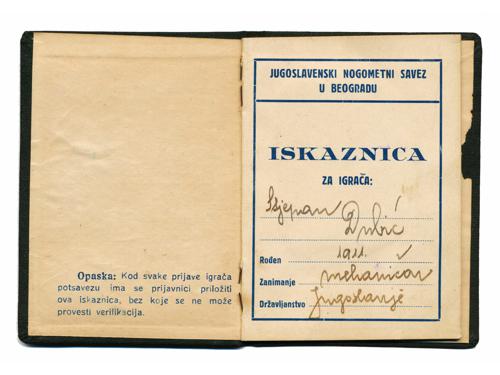 Opaska: Kod svake prijave igrača
potsavezu ima se prijavnici priložiti
ova iskaznica, bez koje se ne može
provesti verifikacija.
JUGOSLAVENSKI NOGOMETNI SAVEZ
U BEOGRADU
ISKAZNICA
ZA IGRAČA:
Stjepan Dubić
Rođen 1911.
Zanimanje mehaničar
Državljanstvo